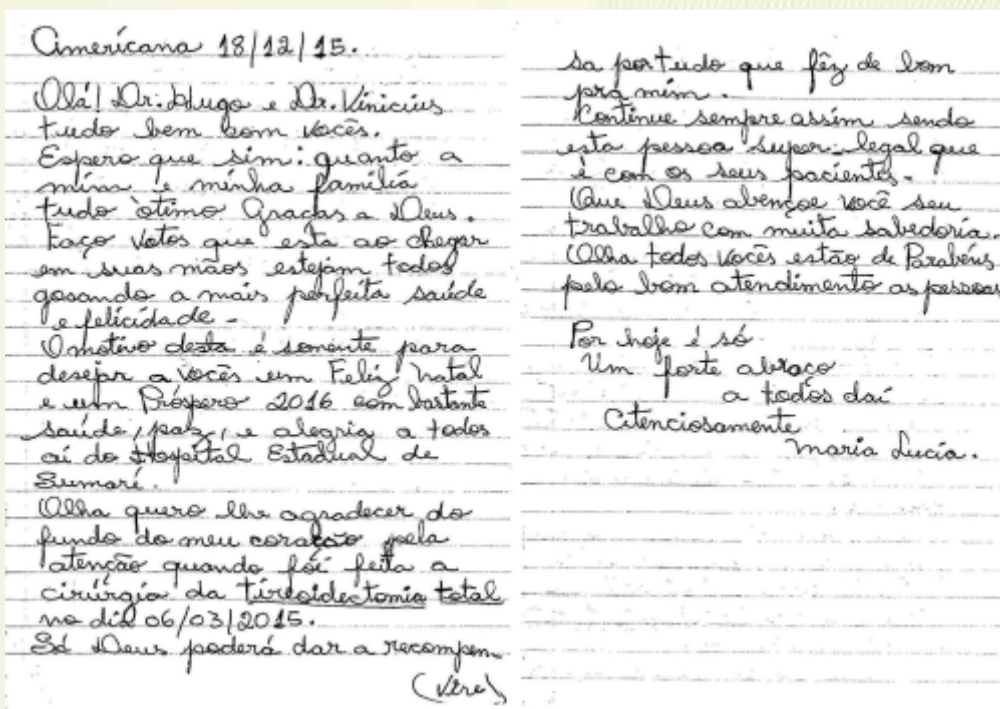 Americana 18/12/15.
Olá! Dr. Hugo e Dr. Vinicius
tudo bem com vocês.
Espero que sim: quanto a
mim e minha família
tudo ótimo Graças a Deus.
Faço votos que esta ao chegar
em suas mãos estejam todos
gosando a mais perfeita saúde
e felicidade -
O motivo desta é somente para
desejar a vocês um Feliz natal
e um Próspero 2016 com bastante
saúde, paz, e alegria a todos
aí do Hospital Estadual de
Sumaré.
Olha quero lhe agradecer do
fundo do meu coração pela
atenção quando foi feita a
cirúrgia da tireoidectomia total
no dia 06/03/2015.
Só Deus poderá dar a recompen-
(Vire)
sa por tudo que fêz de bom
prá mim.
Continue sempre assim sendo
esta pessoa super-legal que
é com os seus pacientes.
Que Deus abençoe você seu
trabalho com muita sabedoria.
Olha todos vocês estão de Parabéns
pelo bom atendimento as pessoas
Por hoje é só
Um forte abraço
a todos daí
Atenciosamente
Maria Lucia.